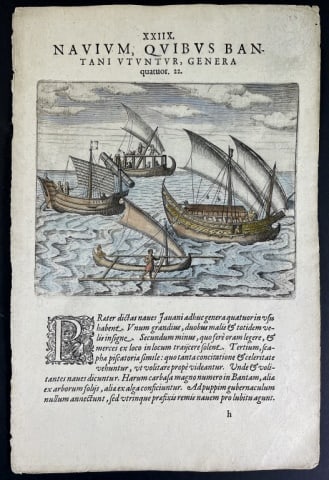 XXIIX.
NAVIVM, QVIBVS BAN-
TANI VTVNTVR, GENERA
quatuor. 22.
PRater dictas naues Iauani adhuc genera quatuor in vsu
habent. Vnum grandius, duobus malis & totidem ve-
lis insigne. Secundum minus, quo ferè oram legere, &
merces ex loco in locum traijcere solent. Tertium, sca-
phæ piscatoriæ simile: quo tanta concitatione & celeritate
vehuntur, vt volitare propè videantur. Vnde & voli-
tantes naues dicuntur. Harum carbasa magno numero in Bantam, alia
ex arborum folijs, alia ex alga conficiuntur. Ad puppim gubernaculum
nullum annectunt, sed vtrinque prafixis remis nauem pro lubitu agunt.
h